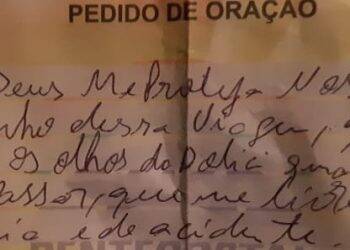 PEDIDO DE ORAÇÃO
Deus Me Proteja Nos
nho dessa Viagem,
os olhos do Polici qua
assar, que me livre
ia e de acidente
PENTECOSTAL